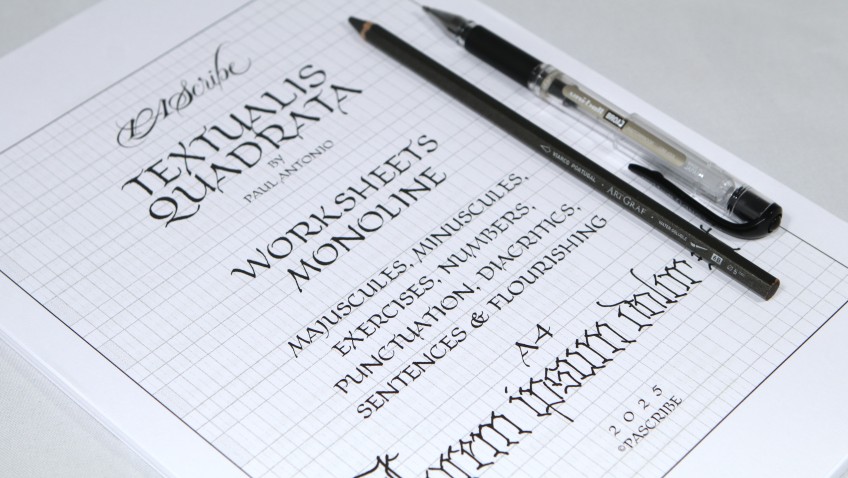 PAScribe
TEXTUALIS
QUADRATA
BY
PAUL ANTONIO
WORKSHEETS
MONOLINE
MAJUSCULES, MINUSCULES,
EXERCISES, NUMBERS,
PUNCTUATION, DIACRITICS,
SENTENCES & FLOURISHING
A4
Lorem ipsum dolor
2025
©PASCRIBE
uni-ball
VIARCO PORTUGAL · ARTGRAF · WATER-SOLUBLE